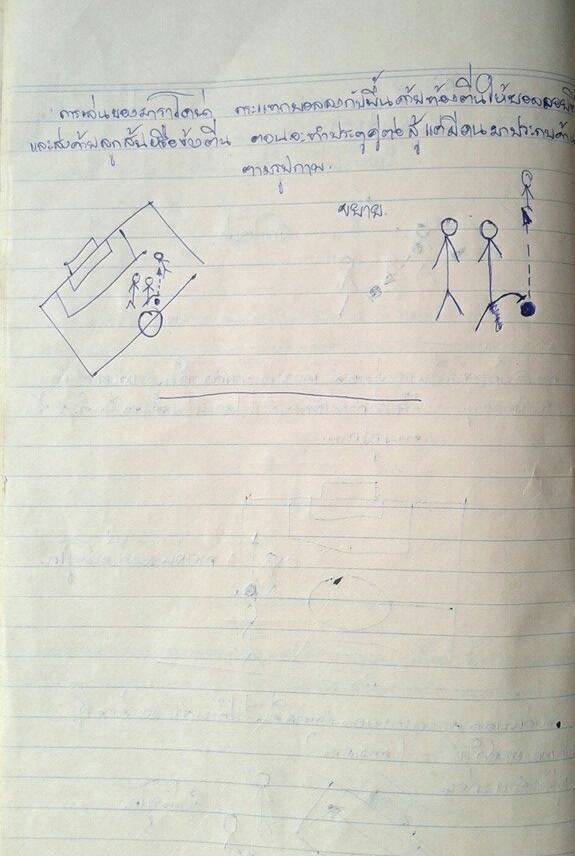 การเล่นของมาราโดน่า กระแทกบอลลงกับพื้นด้วยท้องตีนให้บอลลอย
และส่งด้วยลูกสั้นหรือข้างตีน ตอนจะทำประตูคู่ต่อสู้ แต่มีคนมาประกบด้าน
ตามรูปภาพ.
ขยาย.